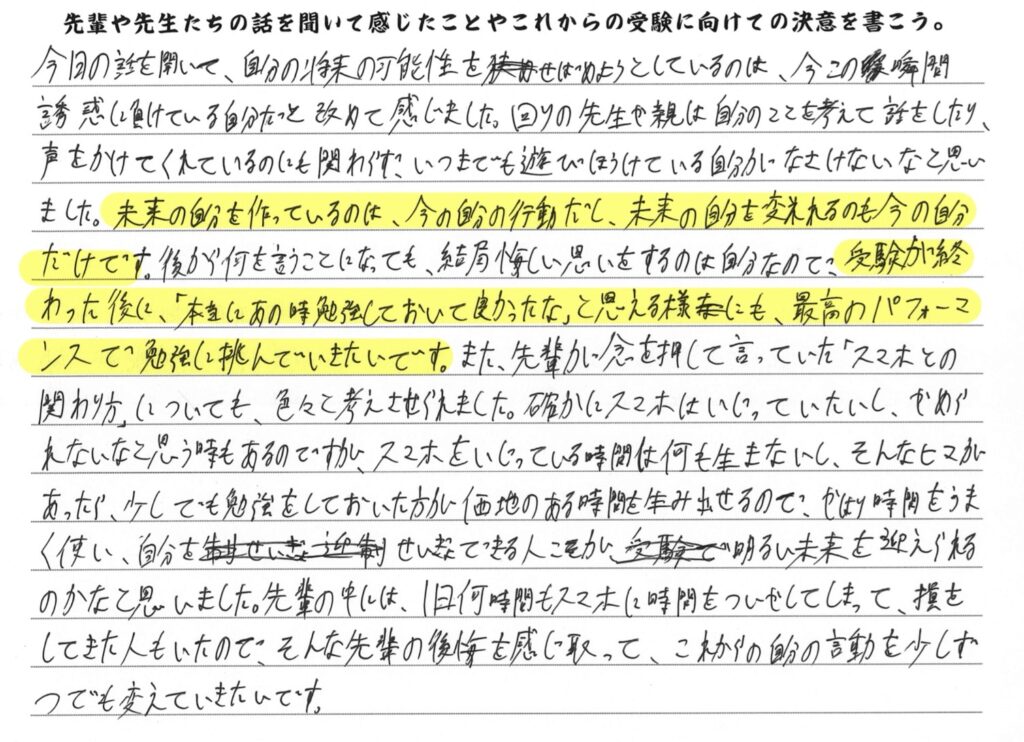 先輩や先生たちの話を聞いて感じたことやこれからの受験に向けての決意を書こう。
今日の話を聞いて、自分の将来の可能性をせばめようとしているのは、今この瞬間
誘惑に負けている自分だっと改めて感じました。回りの先生や親は自分のことを考えて話をしたり、
声をかけてくれているのにも関わらず、いつまでも遊びほうけている自分がなさけないなと思い
ました。未来の自分を作っているのは、今の自分の行動だし、未来の自分を変えれるのも今の自分
だけです。後から何を言うことになっても、結局悔しい思いをするのは自分なので、受験が終
わった後に、「本当にあの時勉強しておいて良かったな」と思える様にも、最高のパフォーマ
ンスで勉強に挑んでいきたいです。また、先輩が念を押して言っていた「スマホとの
関わり方」についても、色々と考えさせられました。確かにスマホはいじっていたいし、やめら
れないなと思う時もあるのですが、スマホをいじっている時間は何も生まないし、そんなヒマが
あったら、少しでも勉強をしておいた方が価地のある時間を生み出せるので、やはり時間をうま
く使い、自分をせいぎょできる人こそが、明るい未来を迎えられる
のかなと思いました。先輩の中には、1日何時間もスマホに時間をついやしてしまって、損を
してきた人もいたので、そんな先輩の後悔を感じ取って、これからの自分の言動を少しず
つでも変えていきたいです。